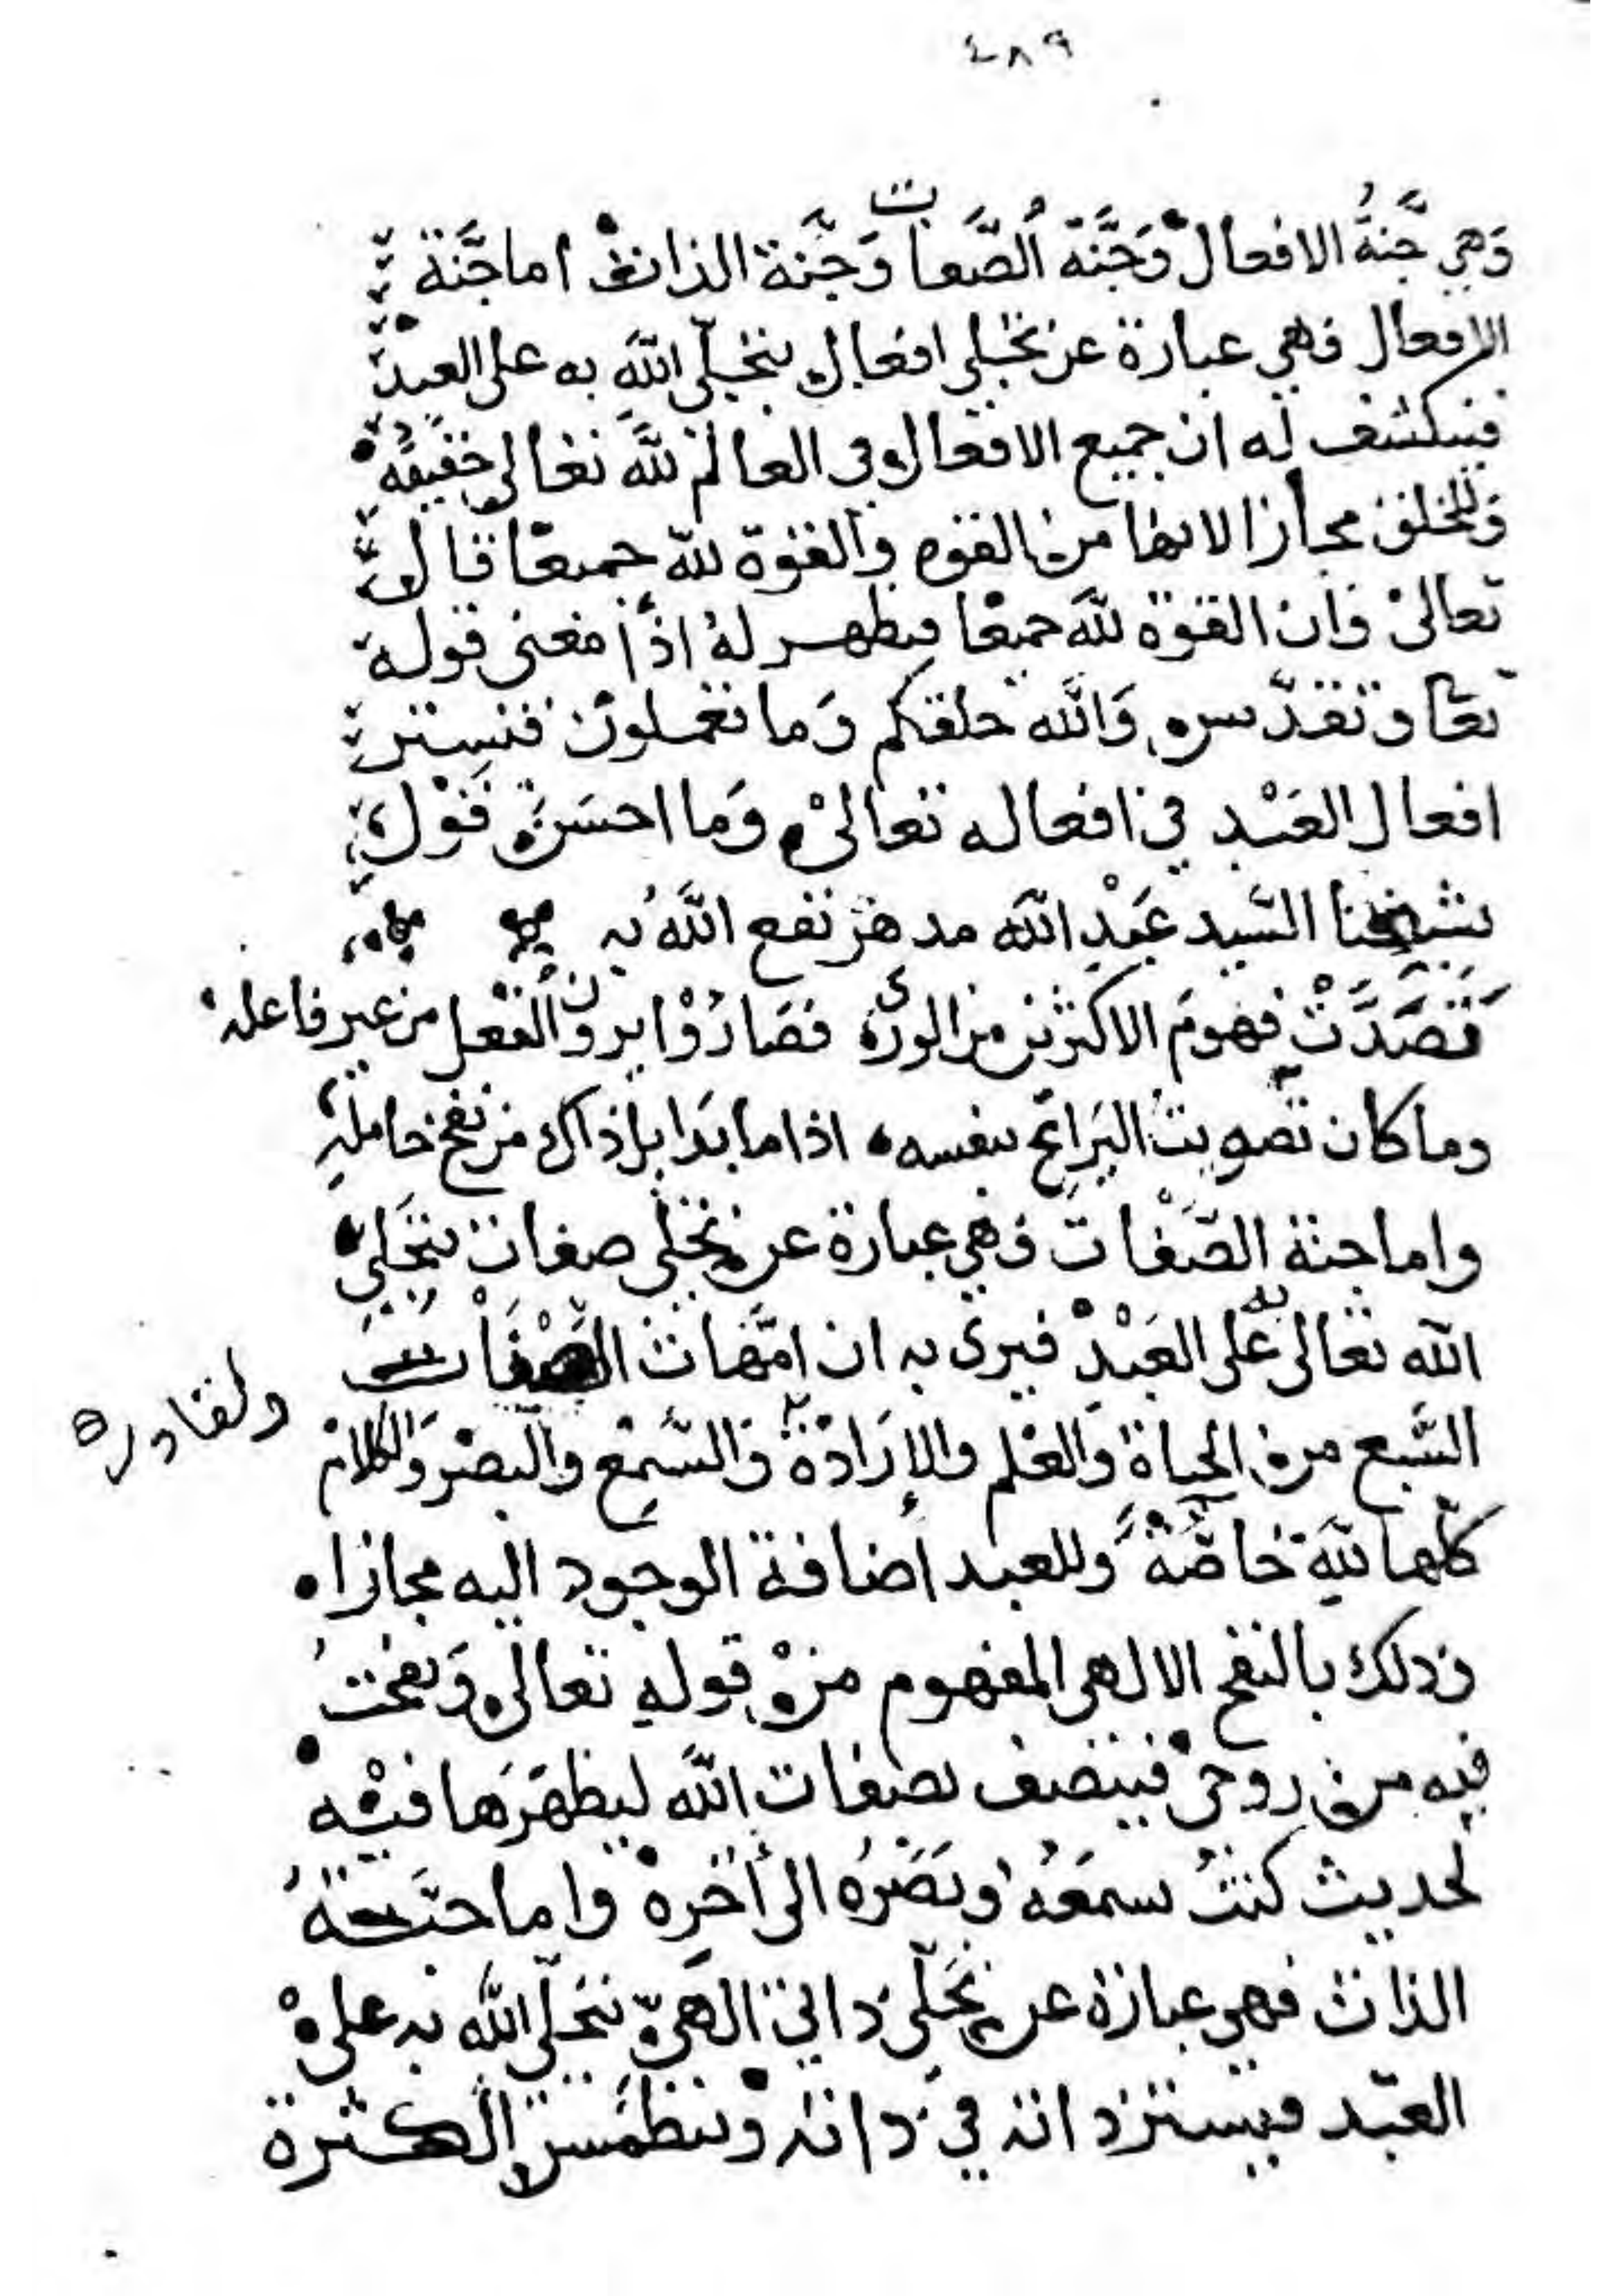 ٤٨٩
وَهِي جَّنةُ الافعال وَجَّنَة الصَّفات وَجَّنة الذات اما جَّنَة
الافعال فهي عبارة عن تجلي افعال يتجلّى اللّه به على العبد
فينكشف له ان جميع الافعال في العالم للّه تعالى حقيقة
وللخلق مجازا لانها من القوه والقوة للّه جميعا قال
تعالى وان القوة للّه جميعا فيظهر لهُ اذًا معنى قوله
تعا وتقدّس وَاللّه خلقكم وَما تعملون فتستتر
افعال العَبْد في افعاله تعالى وَما احسَن قَوْل
شيخنا السّيد عَبْدِ اللّه مدهر نفع اللّهُ به
تَصَدَّتْ فهومَ الاكثرين من الورى فصَارُوْا يرون الفعل من غير فاعله
وما كان تصويت اليَراع بنفسه اذا ما بدا بل ذاك من نفخ حامله
واما جنة الصّفات فهي عبارة عن تجلي صفات يتجَلى
اللّه تعالى به على العَبْدِ فيرى به ان امَّهات الصّفَات
السَّبع من الحياة والعلم والإرَادَة وَالسَّمِع والبصَر وَالكلام
ولقادره
كلّها للّه خاصّةً وللعبد اضافة الوجود اليه مجازا
وذلك بالنفخ الالهى المفهوم من قوله تعالى وَنفختُ
فيه من روحى فيتصف بصفات اللّه ليظهرَها فيْه
لحديث كنتُ سمعَهُ وبَصَرَهُ الى أخرِه واما جنّة
الذات فهي عبارة عن تجَلّى ذاتي الهيّ يتجلّى اللّه به على
العبّد فيستتر ذاته في ذاته وتنطمس الكثرة